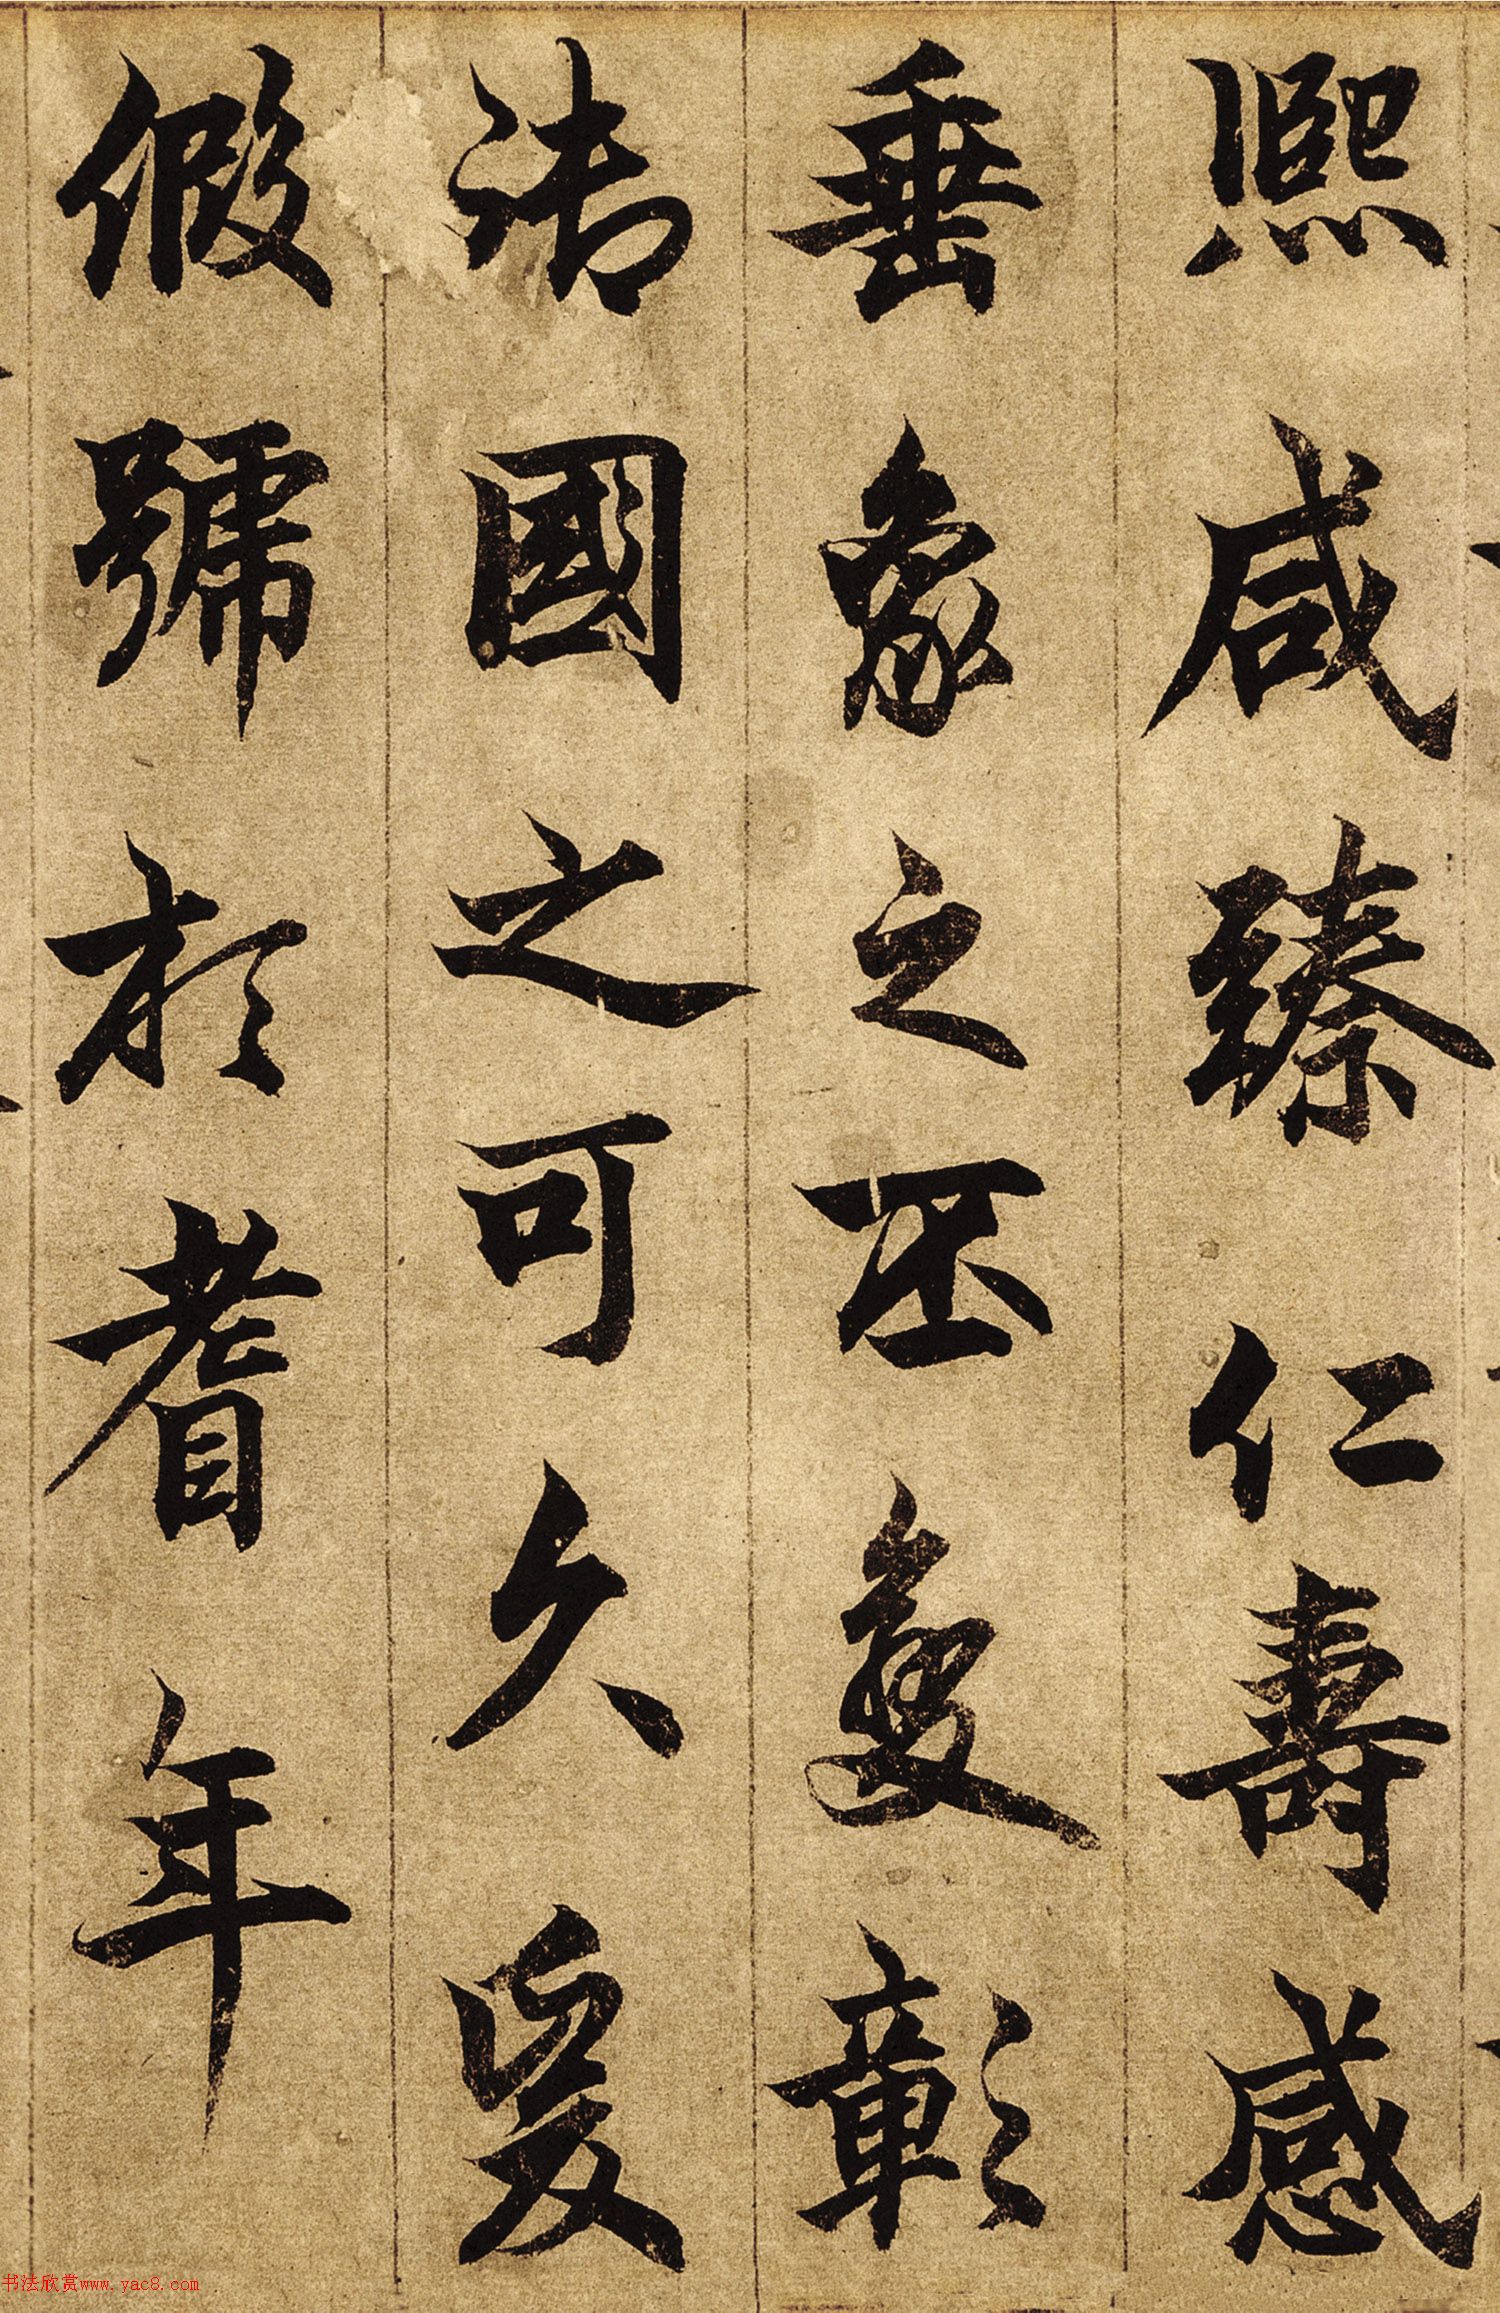 熙咸臻仁壽感
垂象之丕彰
法國之可久爰
假號於耆年
书法欣赏www.yac8.com